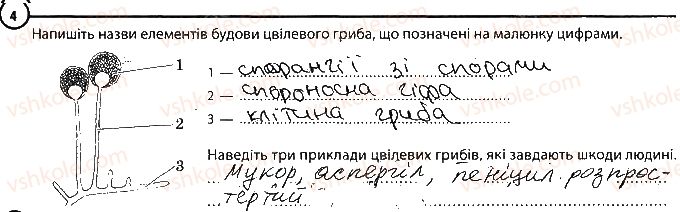 4
Напишіть назви елементів будови цвілевого гриба, що позначені на малюнку цифрами.
1
2
3
1 — спорангії зі спорами
2 — спороносна гіфа
3 — клітина гриба
Наведіть три приклади цвілевих грибів, які завдають шкоди людині.
Мукор, аспергіл, пеніцил розпрос-
тертий
vshkole.com